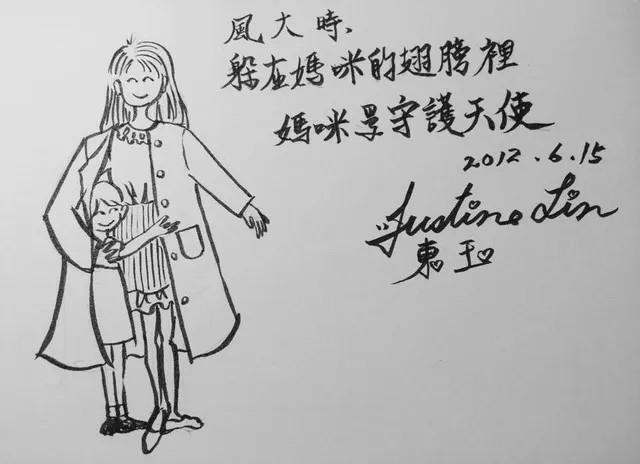 風大時、
躲在媽咪的翅膀裡
媽咪是守護天使
2012.6.15
Justine Lin
東玉